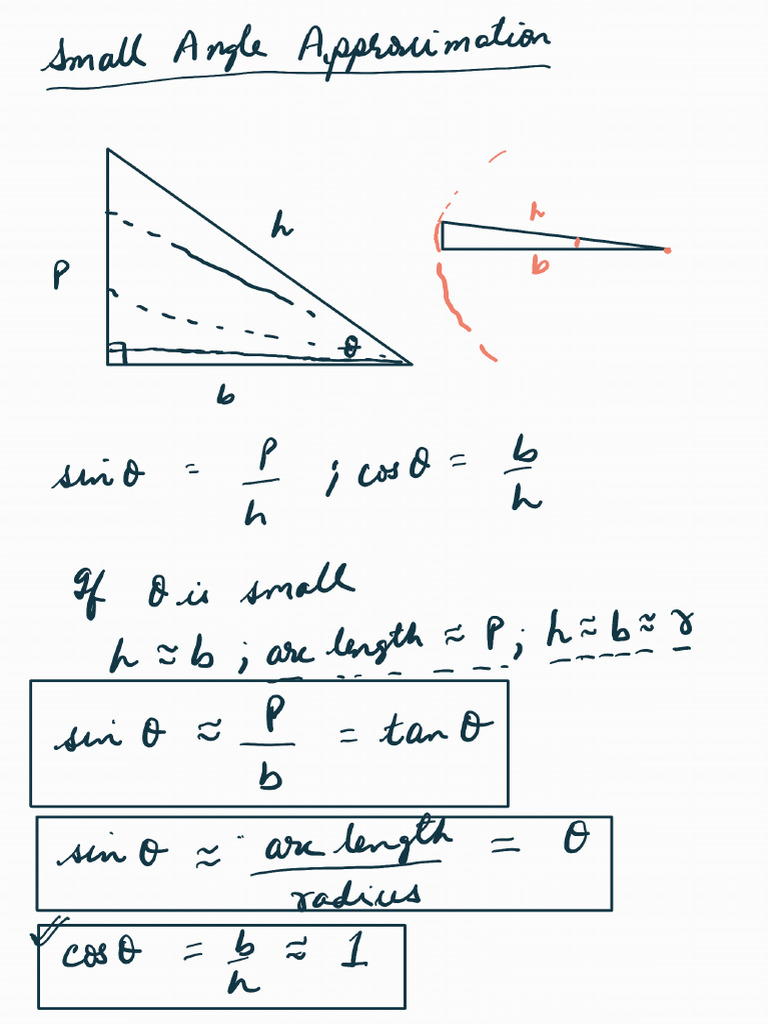 Small Angle Approximation
h
P
θ
b
h
b
sin θ = P/h ; cos θ = b/h
If θ is small
h ≈ b ; arc length ≈ P ; h ≈ b ≈ r
sin θ ≈ P/b = tan θ
sin θ ≈ arc length/radius = θ
cos θ = b/h ≈ 1